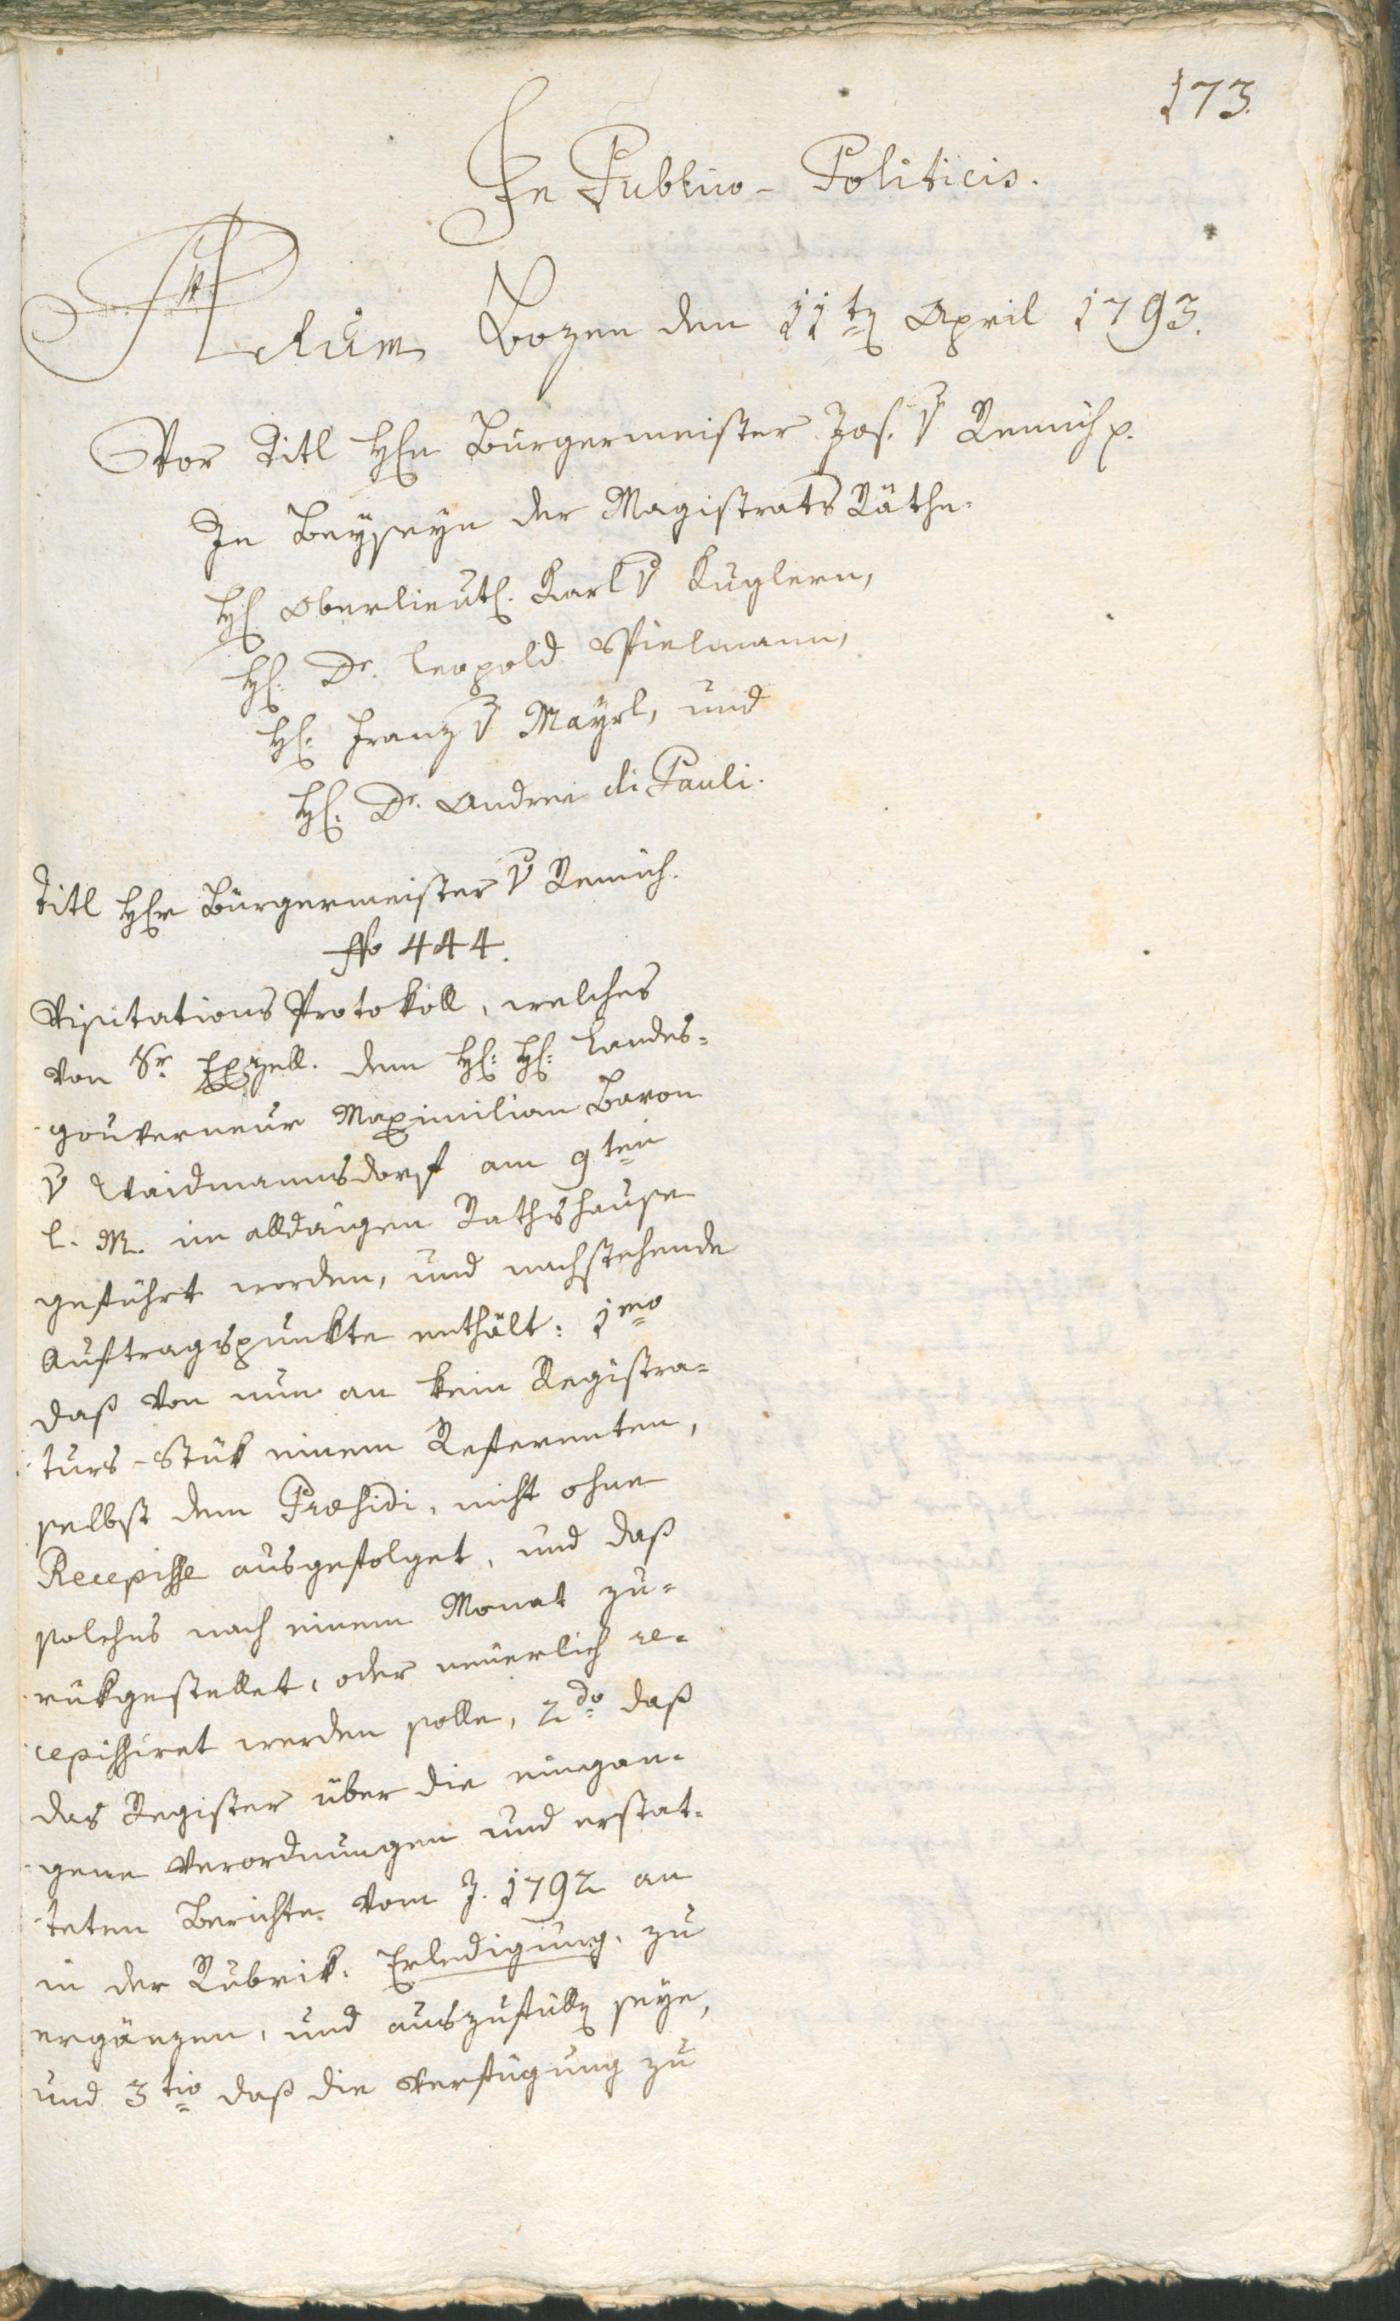 173.
In Publico-Politicis.
Actum Bozen den 11ten April 1793.
Vor Titl Hhn Bürgermeister Jos. v Remich p.
In Beyseyn der Magistrats Räthe.
H. Oberlieut. Karl v Kuglern,
H. Dr. Leopold Spielmann,
H. Franz v Mayrl, und
H. Dr. Andree di Pauli.
Titl Hhr Bürgermeister v Remich.
No 444.
Visitations Protokoll, welches
von Sr. Exzell. dem H: H: Landes-
gouverneur Maximilian Baron
v Waidmannsdorf am 9ten
l. M. im alldaigen Rathshause
geführt worden, und nachstehende
Auftragspunkte enthält: 1mo
daß von nun an kein Registra-
turs-Stük einem Referenten,
selbst dem Præsidi, nicht ohne
Recepisse ausgefolget, und daß
solches nach einem Monat zu-
rükgestellet, oder neuerlich re-
cepissiret werden solle, 2do daß
das Register über die eingan-
gene Verordnungen und erstat-
teten Berichte vom J. 1792 an
in der Rubrik: Erledigung, zu
ergänzen, und auszufüllen seye,
und 3tio daß die Verfügung zu